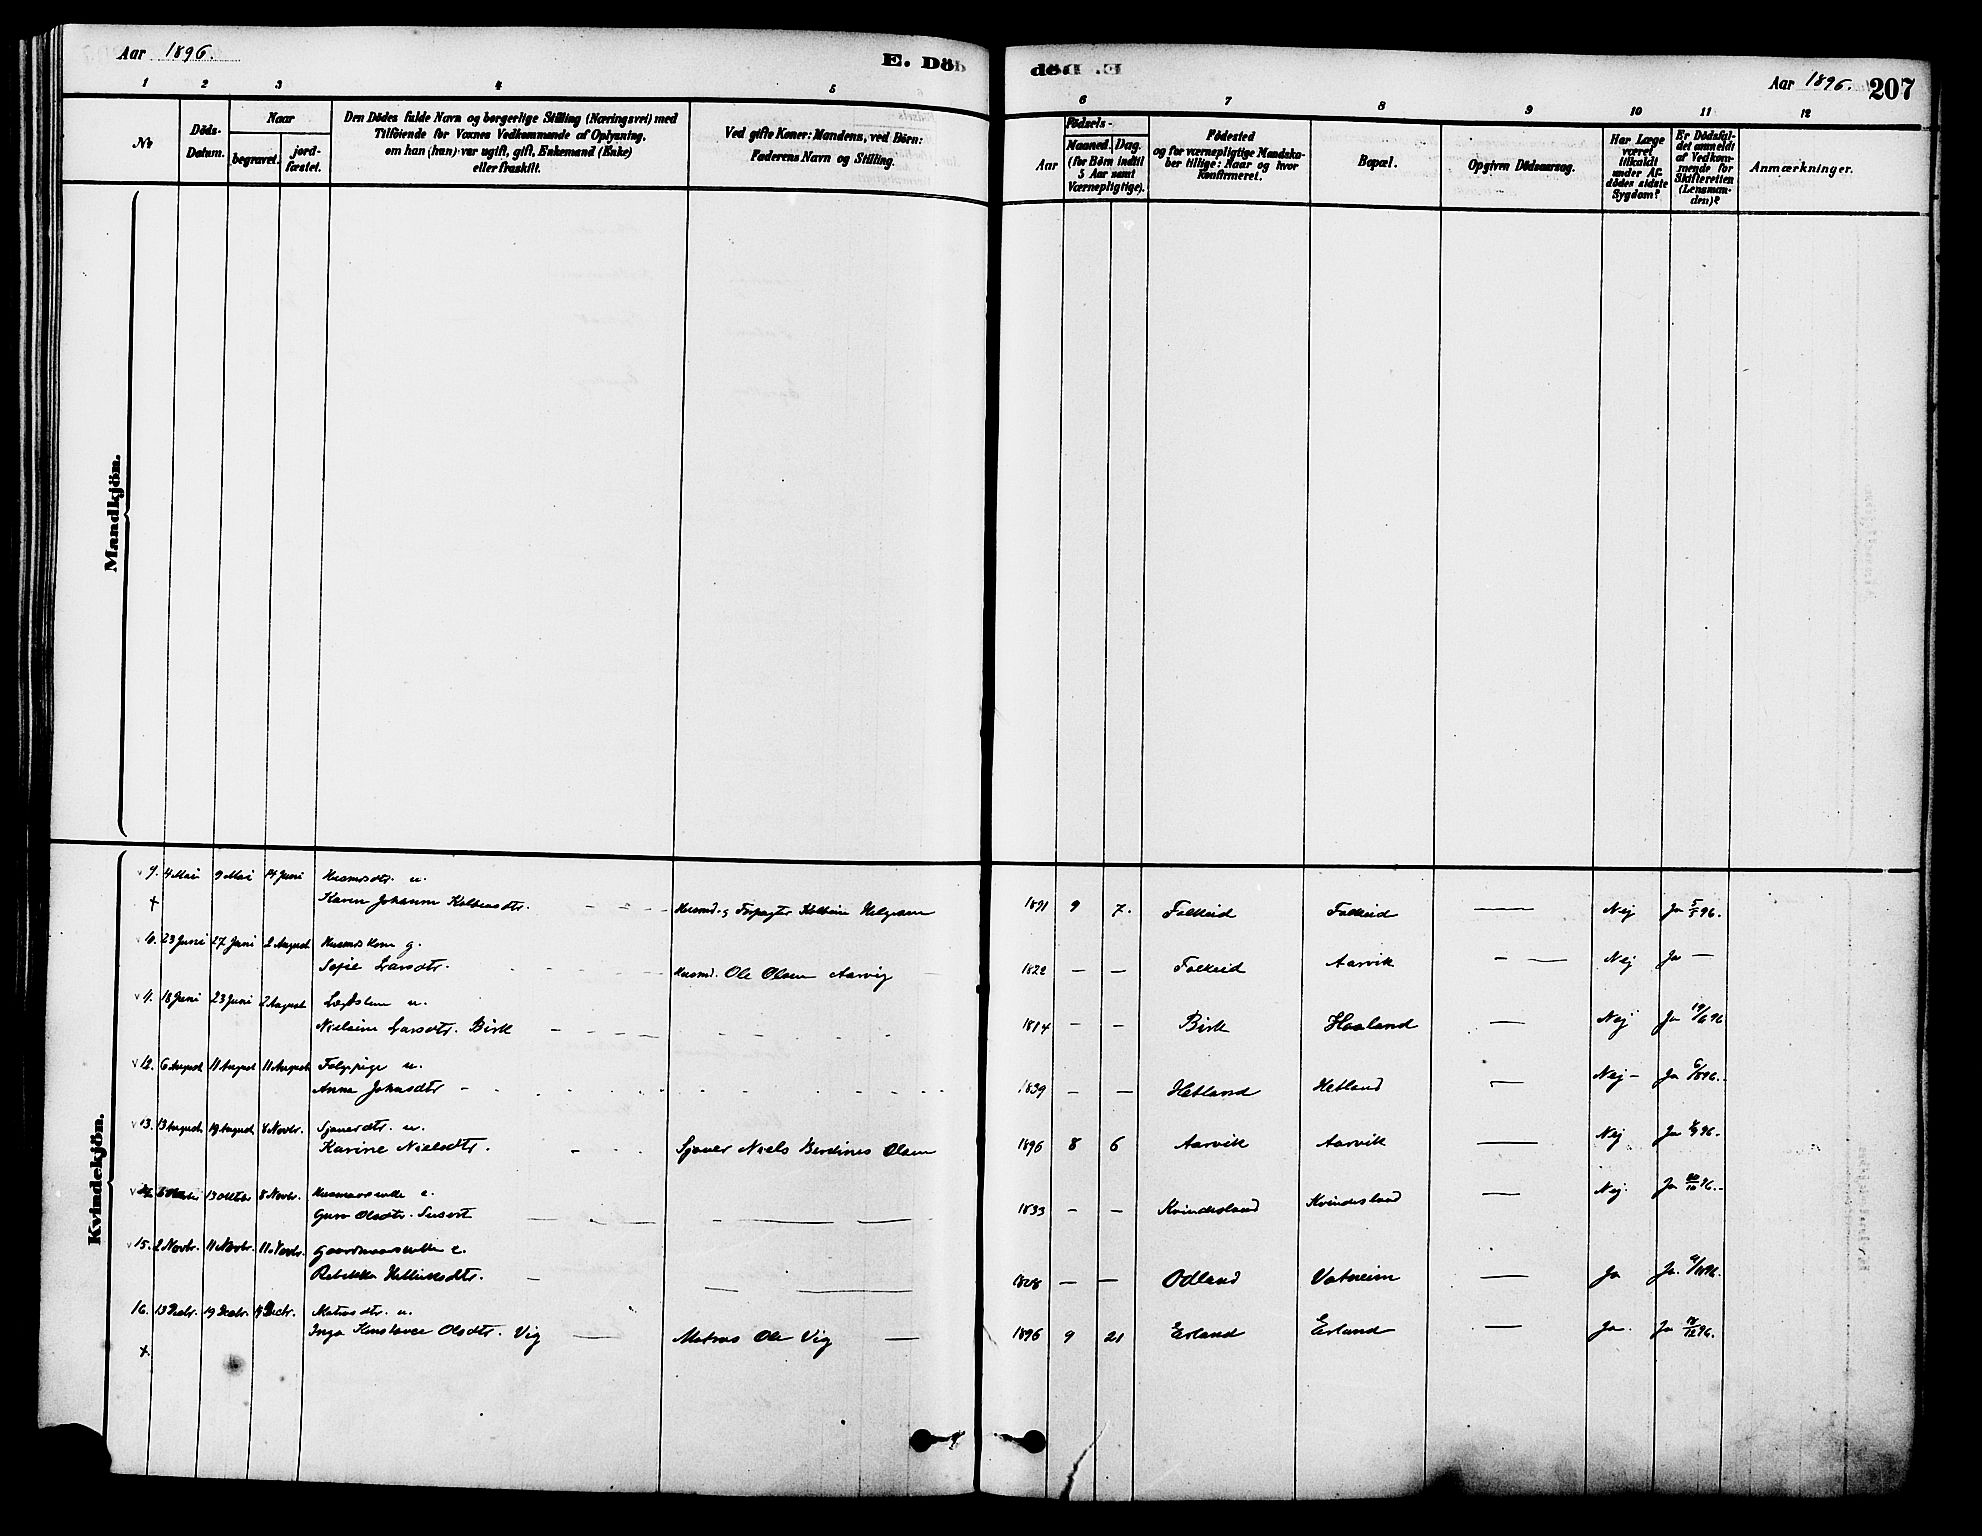 Aar 1896. E. Död
E. Död Aar 1896. 207
1 2 3 4 5
6 7 8 9 10 11 12
No
Döds-Datum.
Naar
begravet. jord-fæstet.
Den Dödes fulde Navn og borgerlige Stilling (Næringsvei) med
Tilföiende for Voxnes Vedkommende af Oplysning,
om han (hun) var ugift, gift, Enkemand (Enke)
eller fraskilt.
Ved gifte Koner: Mandens, ved Börn:
Faderens Navn og Stilling.
Födsels-
Aar
Maaned. Dag.
(for Börn indtil
5 Aar samt
Værnepligtige).
Födested
og for værnepligtige Mandska-
ber tillige: Naar og hvor
Konfirmeret.
Bopæl.
Opgiven Dödsaarsag.
Har Læge
været
tilkaldt
under Af-
dödes sidste
Sygdom?
Er Dödsfal-
det anmeldt
af Vedkom-
mende for
Skifteretten
(Lensman-
den)?
Anmærkninger.
Mandkjön.
Kvindekjön.
9. 4 Mai 9 Mai 14 Juni Husmdtr. u.
Karen Johanne Kolbensdtr. Husmd. g Forpagter Kolbein Helgesen 1891 9 7. Falkeid Falkeid — Nej Ja 5/5 96.
10. 23 Juni 27 Juni 2 August Husmdskone g.
Sofie Larsdtr. Husmd. Ole Olsen Aarvig 1822 — — Falkeid Aarvik — Nej Ja —
11. 18 Juni 23 Juni 2 August Lægdslem u.
Nielsine Larsdtr. Birk 1814 — — Birk Haaland — Nej Ja 19/6 96
12. 6 August 11 August 11 August u.
Anna Johnsdtr 1839 — — Hetland Hetland — Nej — Ja 6/8 96.
13. 13 August 19 August 8 Novbr. Sjømrdtr. u.
Karine Nielsdtr. Niels Berdines Olsen 1896 8 6 Aarvik Aarvik — Nej Ja 96.
13 Oktbr 8 Novbr. e.
Guro Olsdtr. 1833 — — Kvindesland Kvindesland — Nej. Ja 20/10 96.
15. 2 Novbr. 11 Novbr. 11 Novbr. Gaardmandsenke e.
Rebekka 1828 — — Odland Vatneim — Ja Ja. 96.
16. 13 Decbr. 19 Decbr. 19 Decbr. Matrosdtr. u.
Inga Olsdtr. Vig — Matros Ole Vig — 1896 9 21 Erland Erland — Ja. Ja 96.